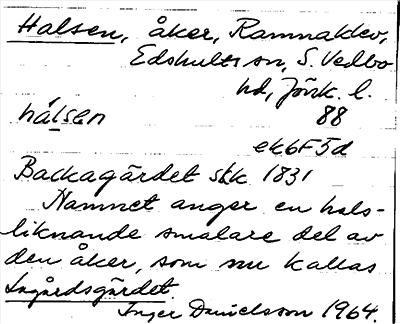 Halsen, åker, Ramnaklev,
Edshults sn, S. Vedbo
hd, Jönk. l.
hálsen 88
ek6F5d
Backagärdet skk 1831
Namnet anger en hals-
liknande smalare del av
den åker, som nu kallas
Lagårdsgärdet.
Inger Danielsson 1964.